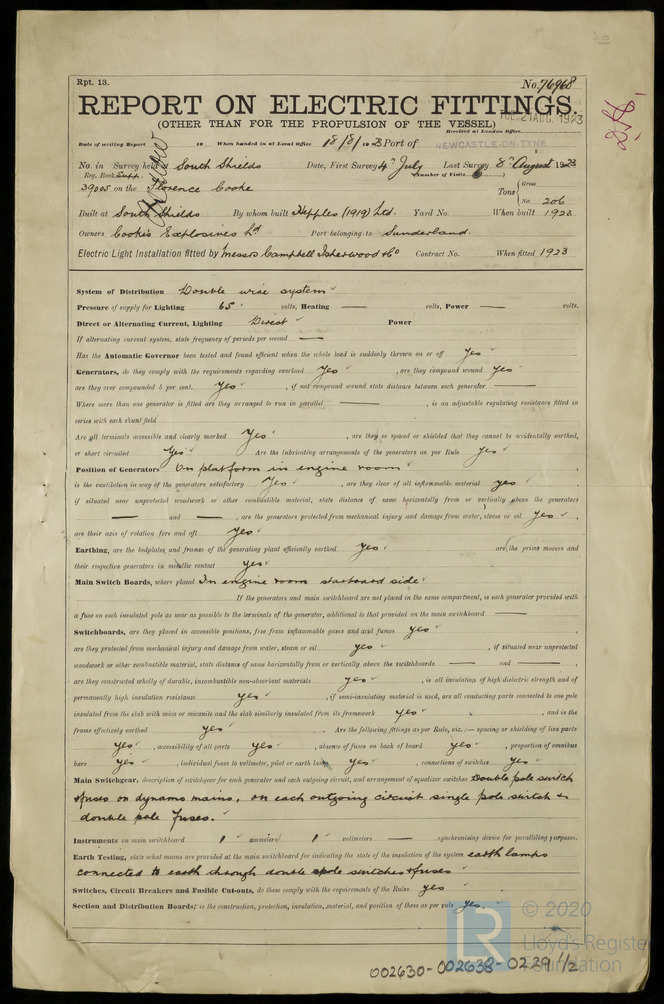 Rpt. 13.
No. 76968
REPORT ON ELECTRIC FITTINGS.
(OTHER THAN FOR THE PROPULSION OF THE VESSEL)
21 AUG. 1923
Received at London Office
Date of writing Report 19 When handed in at Local Office 18/8/1923 Port of NEWCASTLE-ON-TYNE
No. in Survey held at South Shields Date, First Survey 4th July Last Survey 8th August 1923
Reg. Book. Supp. (Number of Visits )
39005 on the Florence Cooke Tons { Gross
Net 206
Built at South Shields By whom built Hepples (1919) Ltd. Yard No. When built 1923
Owners Cooke's Explosives Ld Port belonging to Sunderland.
Electric Light Installation fitted by Messrs Campbell Isherwood & Co Contract No. When fitted 1923
System of Distribution Double wire system
Pressure of supply for Lighting 65 volts, Heating — volts, Power — volts.
Direct or Alternating Current, Lighting Direct Power
If alternating current system, state frequency of periods per second —
Has the Automatic Governor been tested and found efficient when the whole load is suddenly thrown on or off Yes
Generators, do they comply with the requirements regarding overload Yes , are they compound wound Yes
are they over compounded 5 per cent. Yes , if not compound wound state distance between each generator —
Where more than one generator is fitted are they arranged to run in parallel — , is an adjustable regulating resistance fitted in
series with each shunt field
Are all terminals accessible and clearly marked Yes , are they so spaced or shielded that they cannot be accidentally earthed,
or short circuited Yes Are the lubricating arrangements of the generators as per Rule Yes
Position of Generators On platform in engine room
is the ventilation in way of the generators satisfactory Yes , are they clear of all inflammable material yes ,
if situated near unprotected woodwork or other combustible material, state distance of same horizontally from or vertically above the generators
— and — , are the generators protected from mechanical injury and damage from water, steam or oil Yes ,
are their axis of rotation fore and aft Yes
Earthing, are the bedplates and frames of the generating plant efficiently earthed Yes are the prime movers and
their respective generators in metallic contact yes
Main Switch Boards, where placed In engine room starboard side
If the generators and main switchboard are not placed in the same compartment, is each generator provided with
a fuse on each insulated pole as near as possible to the terminals of the generator, additional to that provided on the main switchboard —
Switchboards, are they placed in accessible positions, free from inflammable gases and acid fumes yes ,
are they protected from mechanical injury and damage from water, steam or oil yes , if situated near unprotected
woodwork or other combustible material, state distance of same horizontally from or vertically above the switchboards — and — ,
are they constructed wholly of durable, incombustible non-absorbent materials yes , is all insulation of high dielectric strength and of
permanently high insulation resistance yes , if semi-insulating material is used, are all conducting parts connected to one pole
insulated from the slab with mica or micanite and the slab similarly insulated from its framework yes , and is the
frame effectively earthed yes . Are the following fittings as per Rule, viz.:— spacing or shielding of live parts
yes , accessibility of all parts yes , absence of fuses on back of board yes , proportion of omnibus
bars yes , individual fuses to voltmeter, pilot or earth lamp yes , connections of switches yes
Main Switchgear, description of switchgear for each generator and each outgoing circuit, and arrangement of equalizer switches Double pole switch
& fuses on dynamo mains, on each outgoing circuit single pole switch &
double pole fuses.
Instruments on main switchboard 1 ammeters 1 voltmeters — synchronising device for paralleling purposes.
Earth Testing, state what means are provided at the main switchboard for indicating the state of the insulation of the system earth lamps
connected to earth through double pole switches & fuses
Switches, Circuit Breakers and Fusible Cut-outs, do these comply with the requirements of the Rules yes
Section and Distribution Boards: is the construction, protection, insulation, material, and position of these as per rule yes.
© 2020
Lloyd's Register
Foundation
002630-002638-0229 1/2